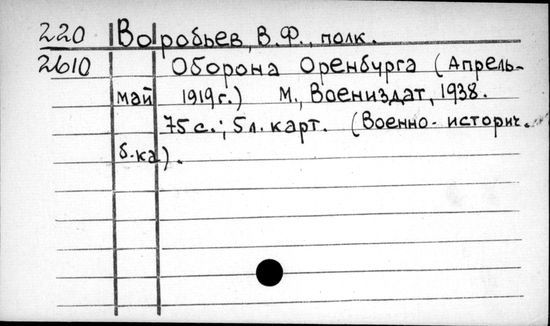 220 Воробьев, В.Ф., полк.
2610 Оборона Оренбурга (Апрель-
май 1919г.) М., Воениздат, 1938.
75с.; 5л. карт. (Военно-историч.
б-ка).